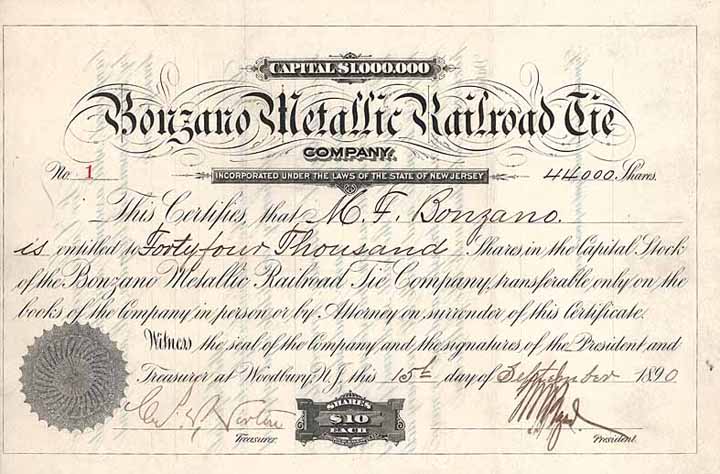 CAPITAL $1.000.000
Bonzano Metallic Railroad Tie
COMPANY.
INCORPORATED UNDER THE LAWS OF THE STATE OF NEW JERSEY
No. 1 44000 Shares.
This Certifies, that M. F. Bonzano.
is entitled to Forty four Thousand Shares in the Capital Stock
of the Bonzano Metallic Railroad Tie Company, transferable only on the
books of the Company in person or by Attorney on surrender of this Certificate.
Witness the seal of the Company and the signatures of the President and
Treasurer at Woodbury, N.J. this 15th day of September 1890
SHARES
$10
EACH
Treasurer. President.